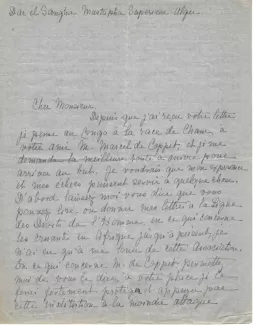 Dar el Sangina Mustapha Supérieur Alger
Cher Monsieur,
Depuis que j'ai reçu votre lettre
je pense au Congo à la race de Cham, à
votre ami M. Marcel de Coppet, et je me
demande la meilleure route à suivre pour
arriver au but. Je voudrais que mon expérience
et mes échecs puissent servir à quelque chose.
D'abord laissez moi vous dire que vous
pouvez lire ou donner mes lettres à la Ligue
des Droits de l'Homme, en ce qui concerne
les en Afrique jusqu'à présent, je
n'ai eu qu'à me de cette Association.
En ce qui concerne M. de Coppet permettez
moi de vous dire, à votre place je
fortement
cette à la moindre attaque